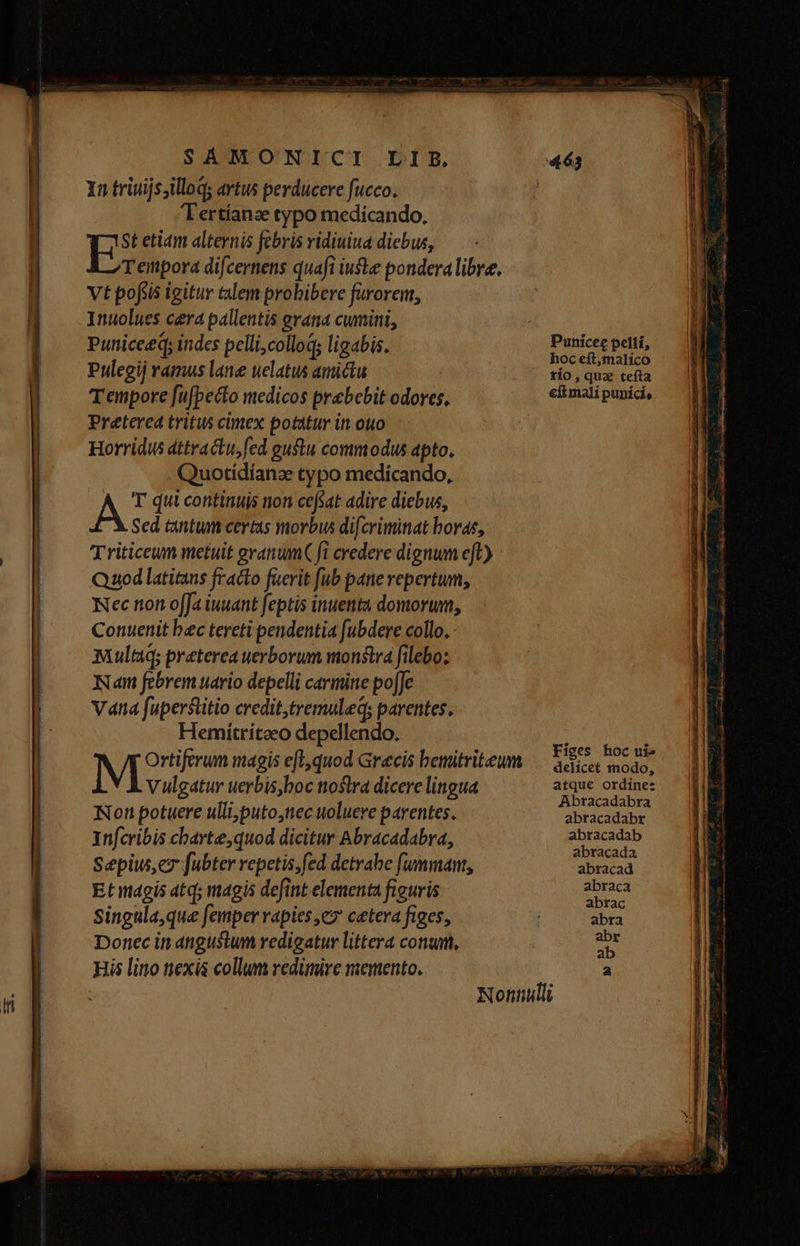 SAMONICI LIB. 463
In triuijs,illoq; artus perducere ſucco.
Tertianæ typo medicando.
ESt etiam alternis febris ridiuiua diebus,
Tempora diſcernens quaſi iuſtæ pondera libræ.
Vt poſſis igitur talem prohibere furorem,
Inuolues cæra pallentis grana cumini,
Puniceæq; indes pelli,colloq; ligabis.
Pulegij ramus lanæ uelatus amictu
Tempore ſuſpecto medicos præbebit odores.
Præterea tritus cimex potatur in ouo
Horridus attractu,ſed guſtu commodus apto.
Quotidianæ typo medicando,
AT qui continuis non ceſſat adire diebus,
Sed tantum certas morbus diſcriminat horas,
Triticeum metuit granum( ſi credere dignum eſt)
Quod latitans fracto fuerit ſub pane repertum,
Nec non oſſa iuuant ſeptis inuenta domorum,
Conuenit hæc tereti pendentia ſubdere collo.
Multaq; præterea uerborum monſtra ſilebo:
Nam febrem uario depelli carmine poſſe
Vana ſuperſtitio credit,tremulæq; parentes.
Hemitritæo depellendo.
MOrtiferum magis eſt,quod Græcis hemitritæum
Vulgatur uerbis,hoc noſtra dicere lingua
Non potuere ulli,puto,nec uoluere parentes.
Inſcribis chartæ,quod dicitur Abracadabra,
Sæpius,& ſubter repetis,ſed detrahe ſummam,
Et magis atq; magis deſint elementa figuris
Singula,quæ ſemper rapies,& cætera figes,
Donec in anguſtum redigatur littera conum,
His lino nexis collum redimire memento.
Nonnulli
Puniceę pelli,
hoc eſt,malico
rio, quæ teſta
eſt mali punici,
Figes hoc ui-
delicet modo,
atque ordine:
Abracadabra
abracadabr
abracadab
abracada
abracad
abraca
abrac
abra
abr
ab
a